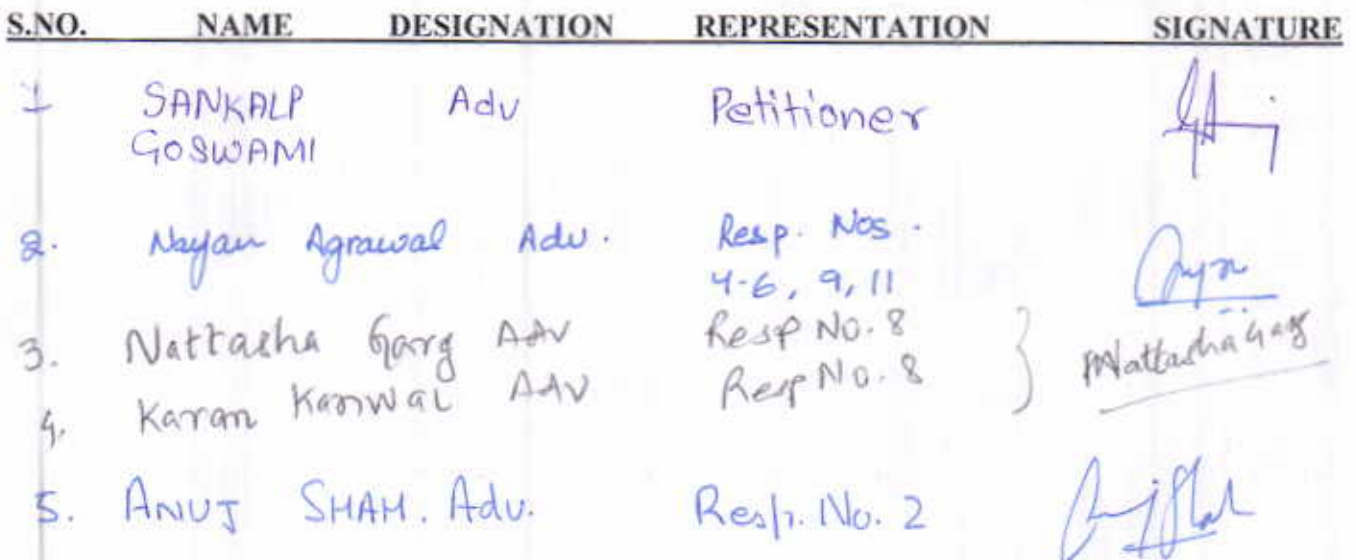 S.NO. NAME DESIGNATION REPRESENTATION SIGNATURE
1 SANKALP Adv Petitioner
GOSWAMI
2. Nayan Agrawal Adv. Resp. Nos.
4-6, 9, 11
3. Nattasha Garg Adv Resp No. 8
Nattasha Garg
4. Karan Kanwal Adv Resp No. 8
5. ANUJ SHAH. Adv. Resp. No. 2